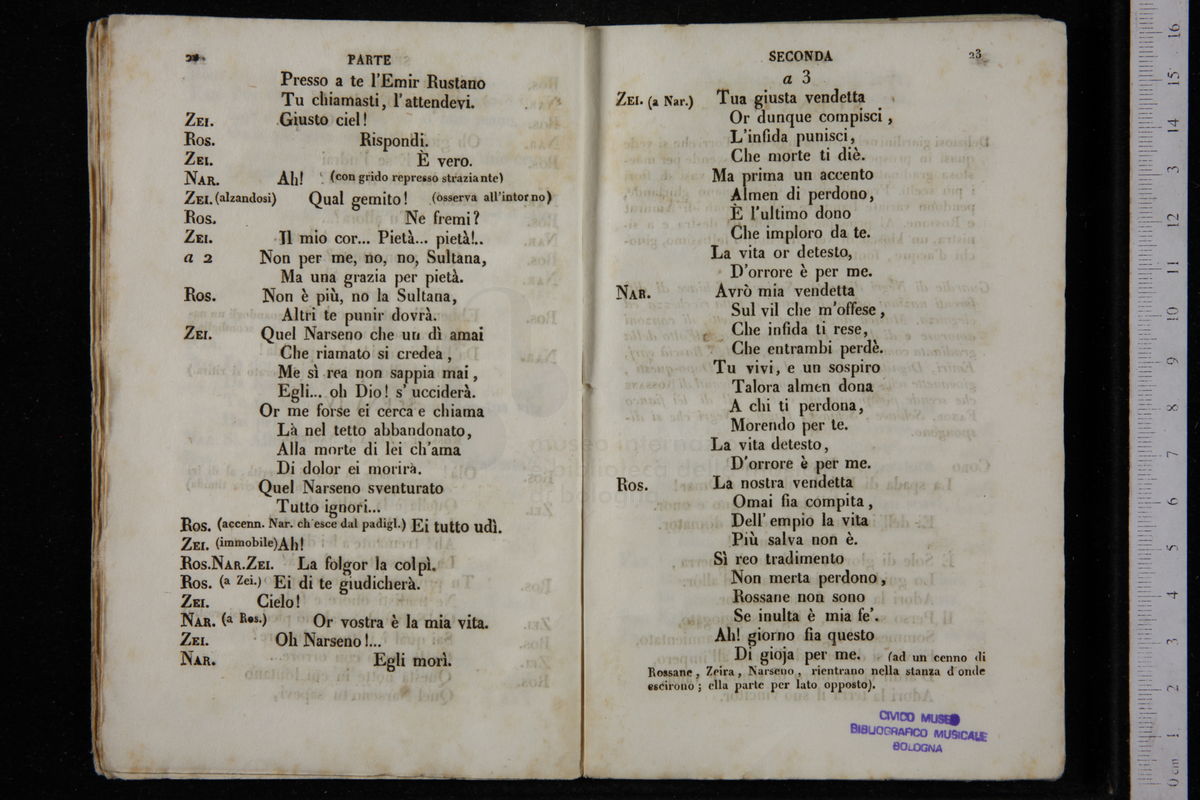 22
PARTE
Presso a te l'Emir Rustano
Tu chiamasti, l'attendevi.
ZEI. Giusto ciel!
ROS. Rispondi.
ZEI. È vero.
NAR. Ah! (con grido represso straziante)
ZEI. (alzandosi) Qual gemito! (osserva all'intorno)
ROS. Ne fremi?
ZEI. Il mio cor... Pietà... pietà!..
a 2 Non per me, no, no, Sultana,
Ma una grazia per pietà.
ROS. Non è più, no la Sultana,
Altri te punir dovrà.
ZEI. Quel Narseno che un dì amai
Che riamato si credea,
Me sì rea non sappia mai,
Egli... oh Dio! s'ucciderà.
Or me forse ei cerca e chiama
Là nel tetto abbandonato,
Alla morte di lei ch'ama
Di dolor ei morirà.
Quel Narseno sventurato
Tutto ignori...
ROS. (accenn. Nar. ch'esce dal padigl.) Ei tutto udì.
ZEI. (immobile) Ah!
ROS. NAR. ZEI. La folgor la colpì.
ROS. (a Zei.) Ei di te giudicherà.
ZEI. Cielo!
NAR. (a Ros.) Or vostra è la mia vita.
ZEI. Oh Narseno!...
NAR. Egli morì.
SECONDA
23
a 3
ZEI. (a Nar.) Tua giusta vendetta
Or dunque compisci,
L'infida punisci,
Che morte ti diè.
Ma prima un accento
Almen di perdono,
È l'ultimo dono
Che imploro da te.
La vita or detesto,
D'orrore è per me.
NAR. Avrò mia vendetta
Sul vil che m'offese,
Che infida ti rese,
Che entrambi perdè.
Tu vivi, e un sospiro
Talora almen dona
A chi ti perdona,
Morendo per te.
La vita detesto,
D'orrore è per me.
ROS. La nostra vendetta
Omai fia compita,
Dell' empio la vita
Più salva non è.
Sì reo tradimento
Non merta perdono,
Rossane non sono
Se inulta è mia fe'.
Ah! giorno fia questo
Di gioja per me. (ad un cenno di
Rossane, Zeira, Narseno, rientrano nella stanza d'onde
escirono; ella parte per lato opposto).
CIVICO MUSEO
BIBLIOGRAFICO MUSICALE
BOLOGNA